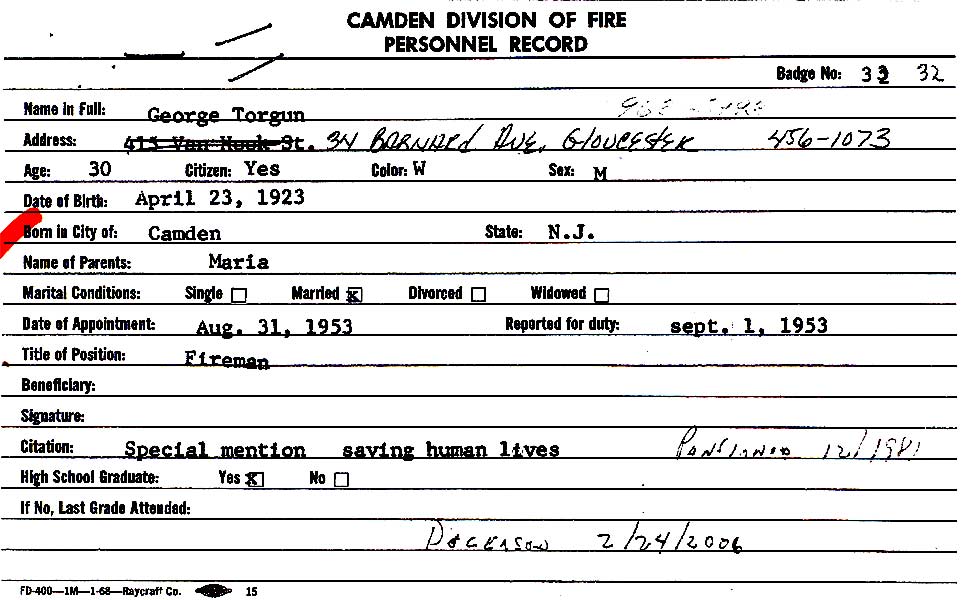 CAMDEN DIVISION OF FIRE
PERSONNEL RECORD
Badge No: 33 32
Name in Full: George Torgun
Address: 415 Van Hook St. 34 BARNARD AVE, GLOUCESTER 456-1073
Age: 30 Citizen: Yes Color: W Sex: M
Date of Birth: April 23, 1923
Born in City of: Camden State: N.J.
Name of Parents: Maria
Marital Conditions: Single Married x Divorced Widowed
Date of Appointment: Aug. 31, 1953 Reported for duty: sept. 1, 1953
Title of Position: Fireman
Beneficiary:
Signature:
Citation: Special mention saving human lives PENSIONED 12/1981
High School Graduate: Yes x No
If No, Last Grade Attended:
2/24/2006
FD-400—1M—1-68—Raycraft Co. 15